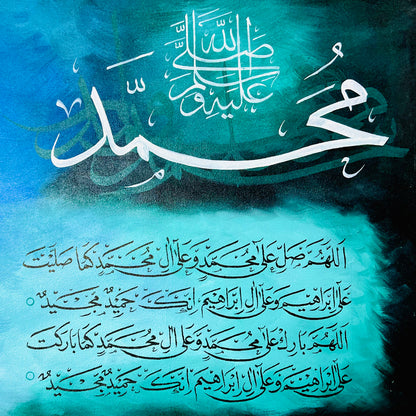 صلى الله عليه وسلم
محمد
اَللّٰهُمَّ صَلِّ عَلٰى مُحَمَّدٍ وَّعَلٰى اٰلِ مُحَمَّدٍ كَمَا صَلَّيْتَ
عَلٰى اِبْرَاهِيْمَ وَعَلٰى اٰلِ اِبْرَاهِيْمَ اِنَّكَ حَمِيْدٌ مَّجِيْدٌ ○
اَللّٰهُمَّ بَارِكْ عَلٰى مُحَمَّدٍ وَّعَلٰى اٰلِ مُحَمَّدٍ كَمَا بَارَكْتَ
عَلٰى اِبْرَاهِيْمَ وَعَلٰى اٰلِ اِبْرَاهِيْمَ اِنَّكَ حَمِيْدٌ مَّجِيْدٌ ○